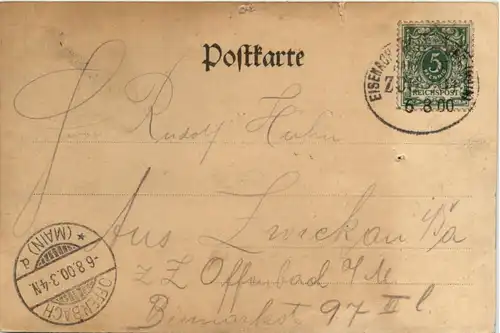 Postkarte
5
REICHSPOST
EISENACH
ZUG
6 8 00
Rudolf Hühn
Aus Zwickau i/a
z Z Offenbach a/M.
Bismarkst 97 II l.
OFFENBACH
* (MAIN) a
-6.8.00.3-4N.